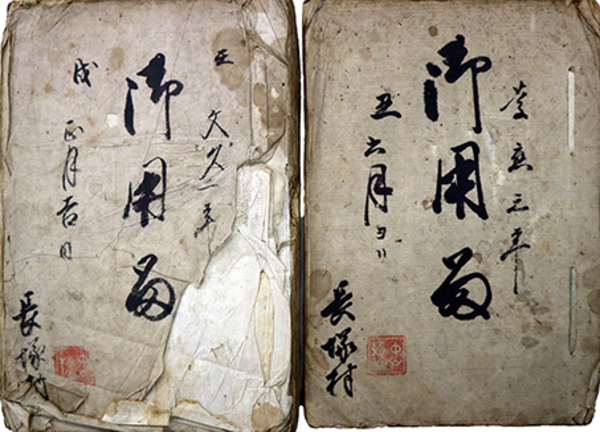 壬
文久二年
御用留
戌
正月吉日
長塚村
慶應元年
御用留
丑六月ヨリ
長塚村